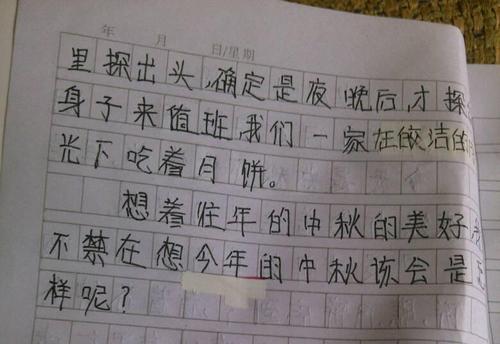 年 月 日/星期
里探出头,确定是夜晚后,才探
身子来值班,我们一家在皎洁的
光下吃着月饼。
想着往年的中秋的美好,
不禁在想今年的中秋该会是
样呢?